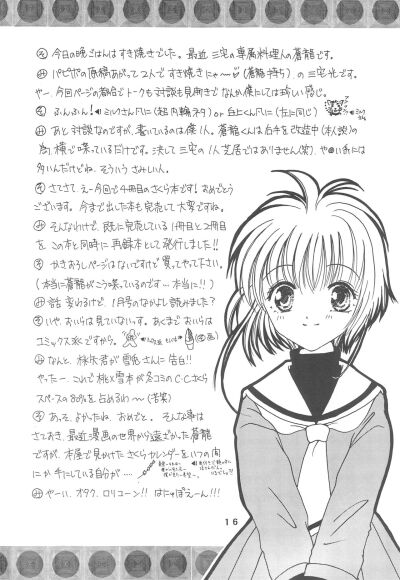 今日の晩ごはんはすき焼きでした。最近 三宅の専属料理人の蒼龍です。
パピザの原稿あがって2人ですき焼きにゃ〜(蒼龍持ち)の三宅光です。
やー、今回ページの都合でトークも対談も見開きでなんか僕にしては珍しい感じ。
ふんふん!
あと対談なのですが、書いているのは僕1人。蒼龍くんは右手を改造中(本人談)の
為、横で喋っているだけです。決して三宅の1人芝居ではありません(笑)。
多いんだけどね、そういうさみしい人。
さてさて、えー今回で4冊目のさくら本です!おめでとう
ございます。今まで出した本も完売して大変ですね。
そんなわけで、既に完売している1冊目と2冊目
をこの本と同時に再録本として発行しました!!
かきおろしページはないですけど買ってやって下さい。
(本当に蒼龍がこう喋っているのです…本当に!!)
話変わるけど、1月号のなかよし読みました?
いや、おいらは見ていないっす。あくまでおいらは
コミックス派ですから。
なんと、桃矢君が雪兎さんに告白!!
やったー、これで桃×雪本が冬コミのC・Cさくら
スペースの80%を占めるわ〜(苦笑)
あっそ。よかったね、おめでと。そんな事は
さておき、最近漫画の世界から遠ざかった蒼龍
ですが、本屋で見かけたさくらカレンダーをいつの間
にか手にしている自分が……
やーい、オタク、ロリコーン!!はにゃぽえーん!!!
16